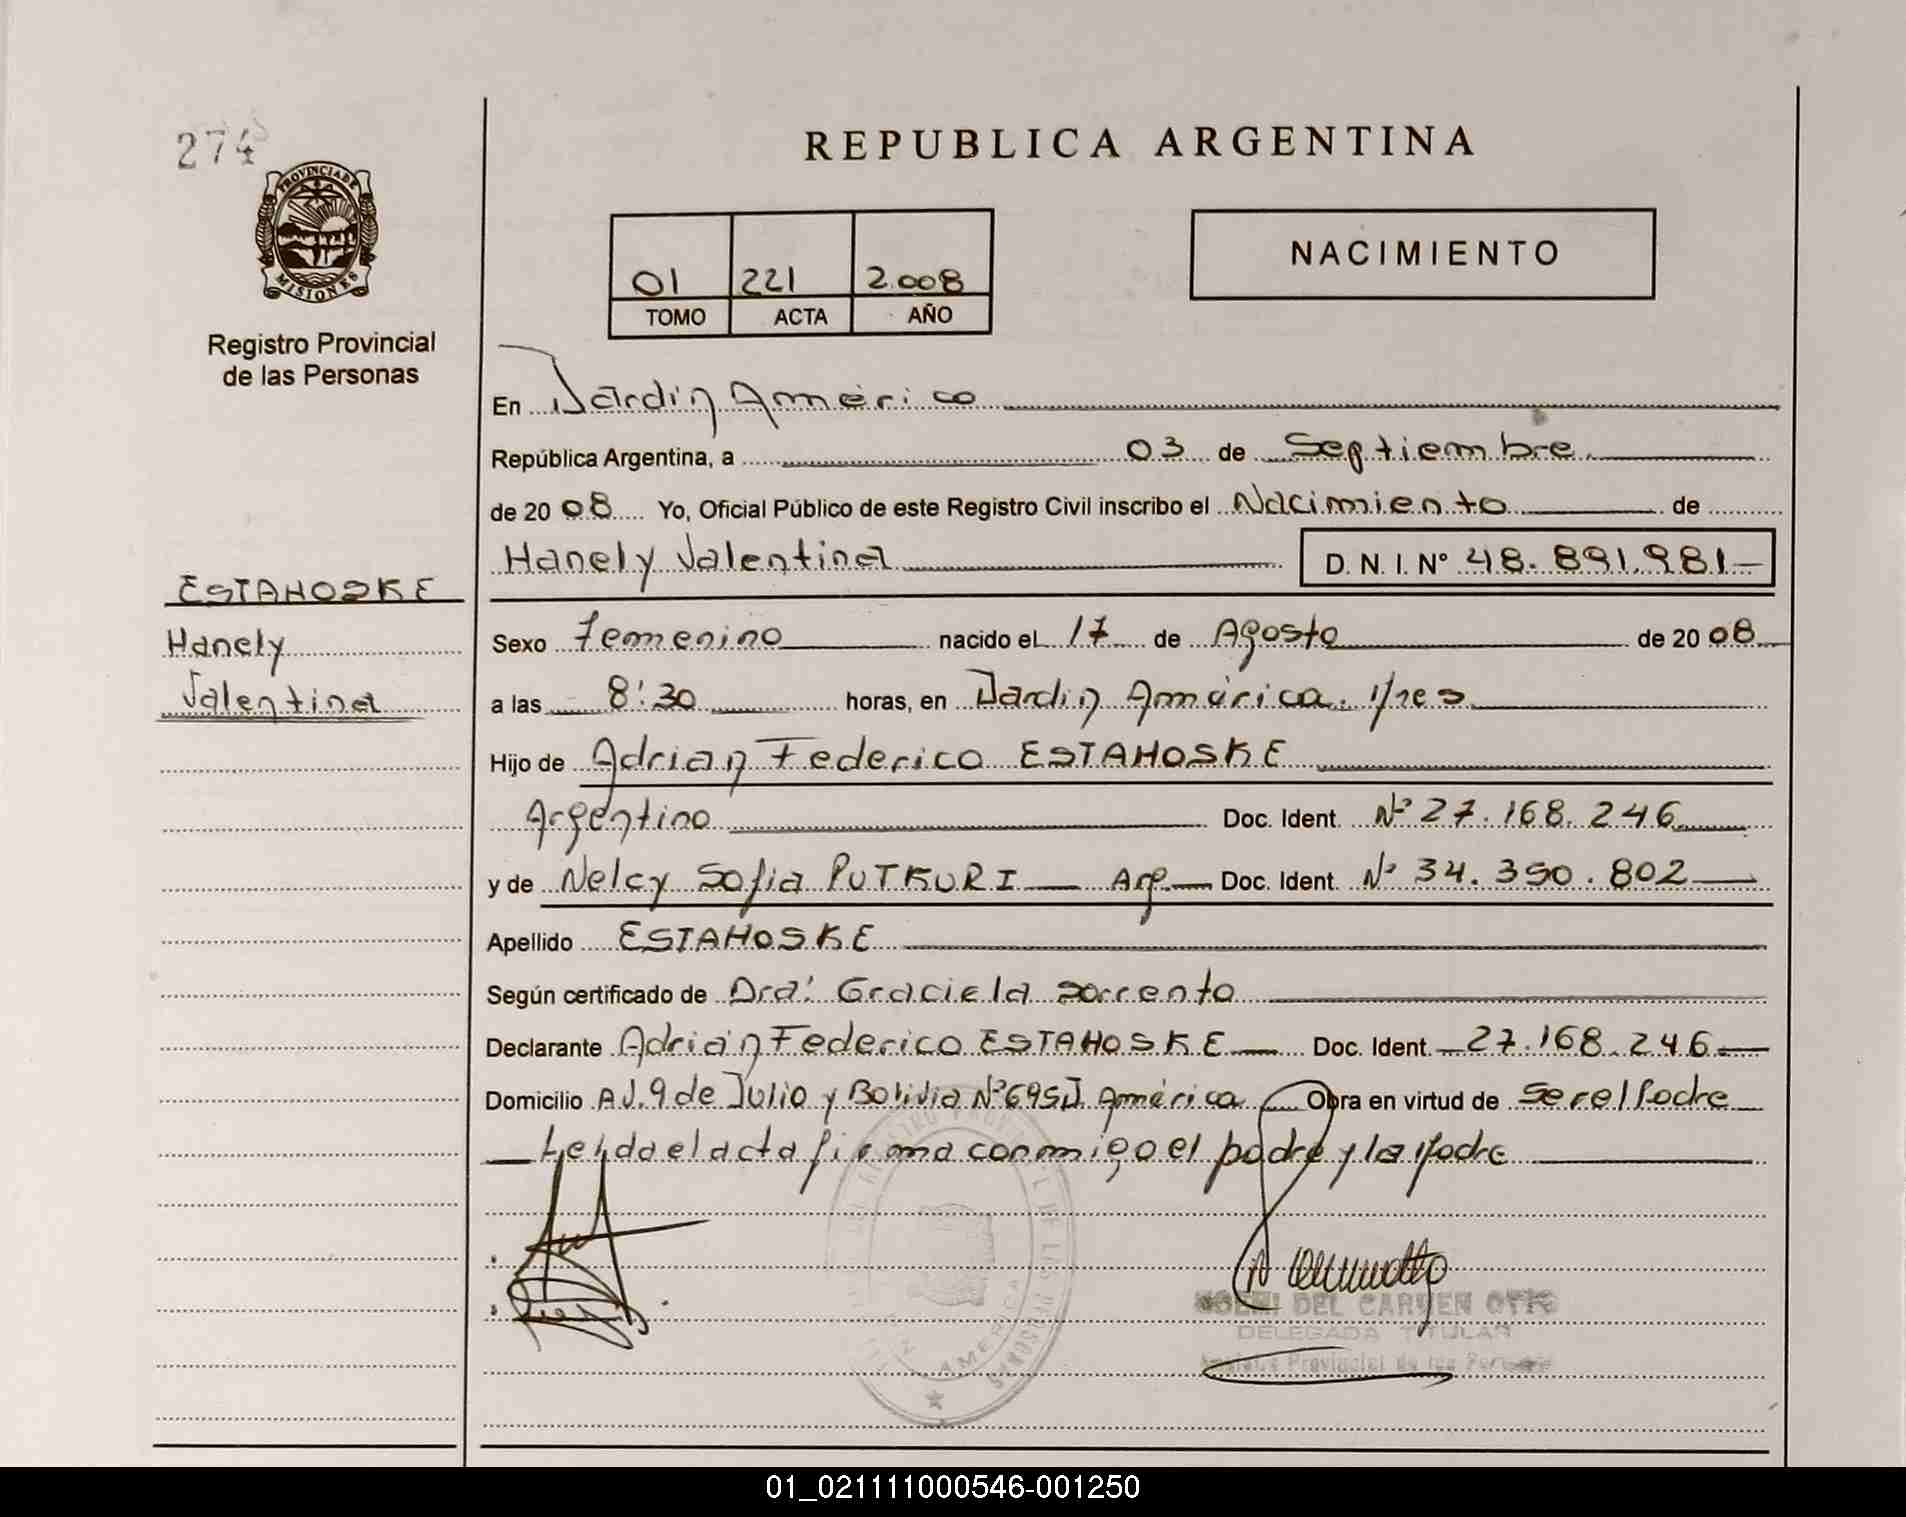 274
PROVINCIA DE
MISIONES
Registro Provincial
de las Personas
ESTAHOSKE
Hanely
Valentina
REPUBLICA ARGENTINA
01 221 2.008
TOMO ACTA AÑO
NACIMIENTO
En Jardín América
República Argentina, a 03 de Septiembre
de 2008 Yo, Oficial Público de este Registro Civil inscribo el Nacimiento de
Hanely Valentina D. N. I. Nº 48.891.981-
Sexo Femenino nacido el 17 de Agosto de 2008
a las 8:30 horas, en Jardín América. Mnes
Hijo de Adrian Federico ESTAHOSKE
Argentino Doc. Ident. Nº 27.168.246
y de Nelcy Sofia PUTKURI Arg. Doc. Ident. Nº 34.350.802
Apellido ESTAHOSKE
Según certificado de Dra: Graciela Sorrento
Declarante Adrián Federico ESTAHOSKE Doc. Ident. 27.168.246
Domicilio AV. 9 de Julio y Bolivia Nº 695 J. América Obra en virtud de Ser el Padre
Leida el acta firma conmigo el padre y la Madre
DEL CARMEN
DELEGADA TITULAR
Provincial de las Personas
AMERICA
01_021111000546-001250